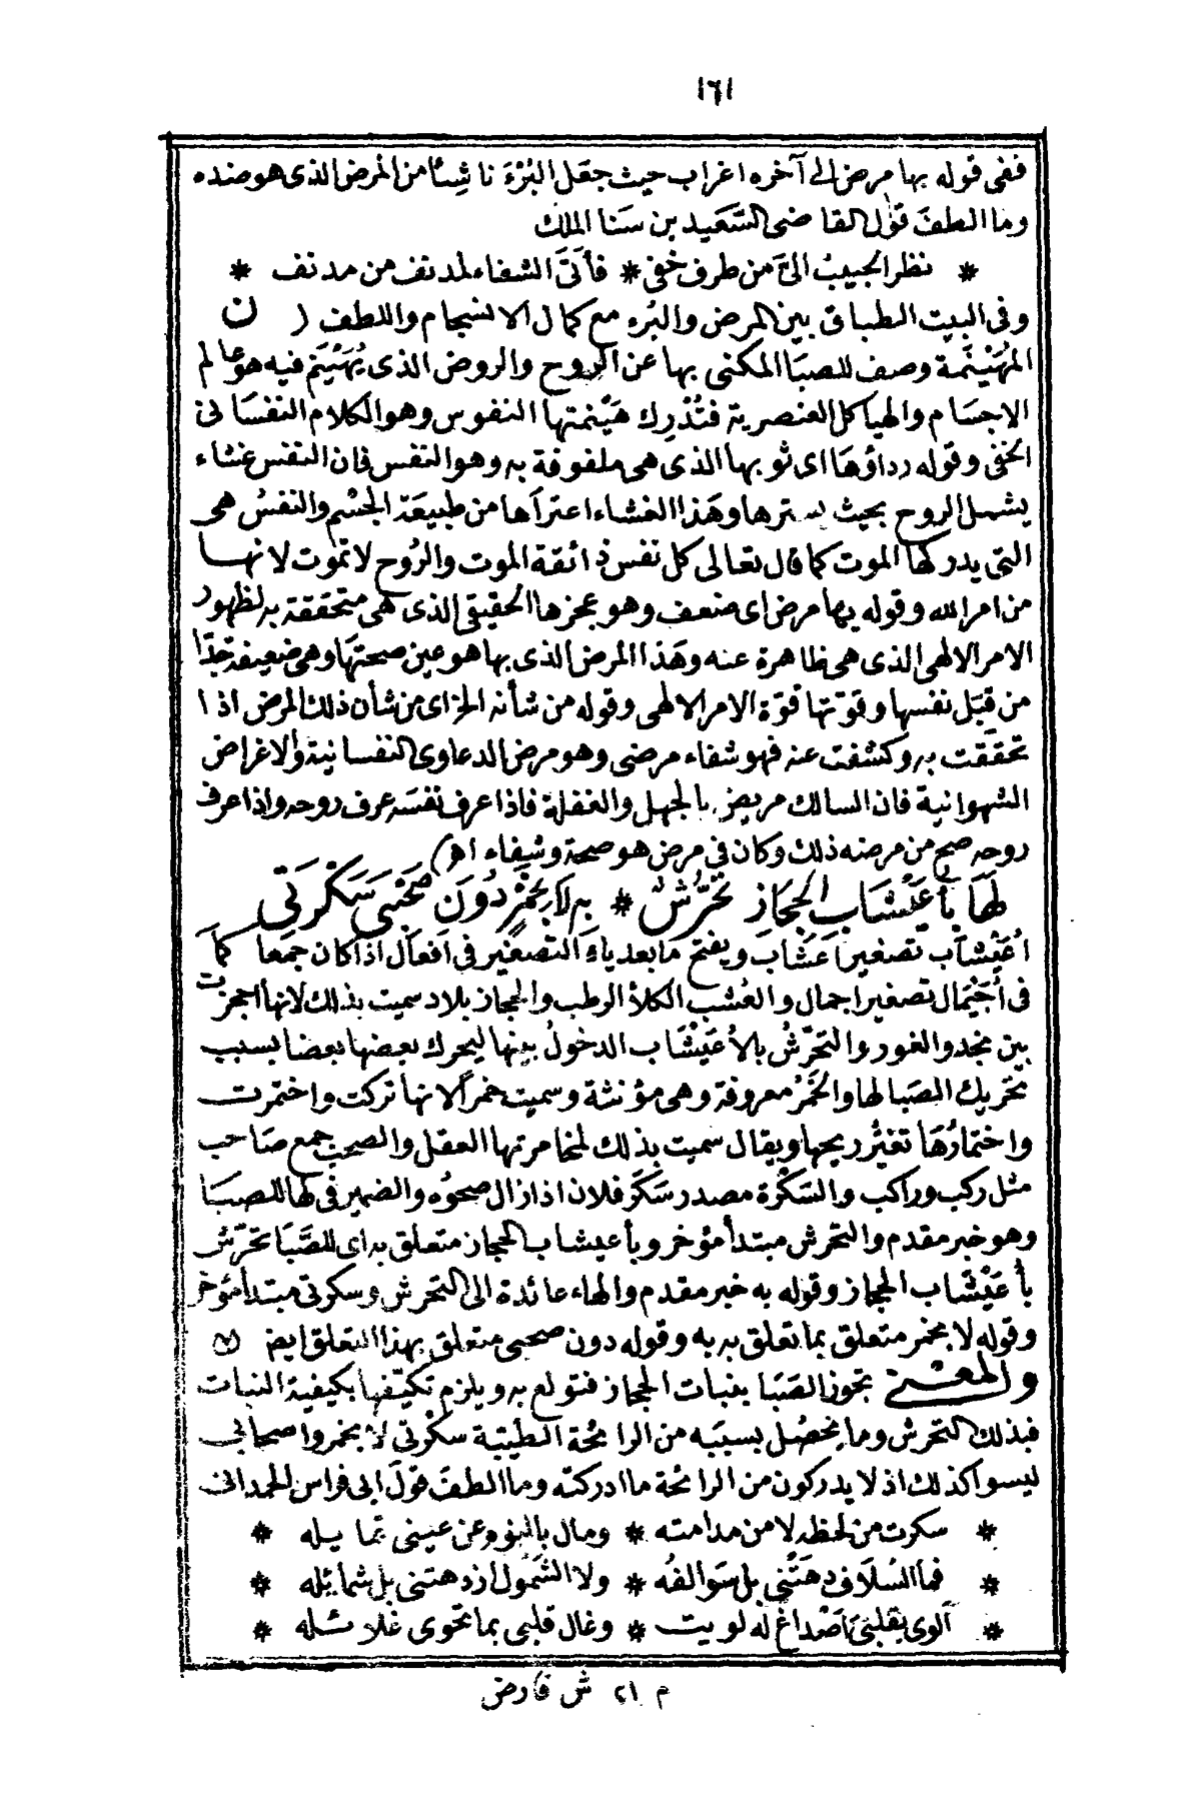 ١٦١
ففى قوله بها مرض الى آخره اغراب حيث جعل البُرْءَ ناشِئا من المرض الذى هو ضده
وما الطفَ قول القاضى السَّعَيد بن سَنا الملك
* نظر الحبيبُ الىَّ من طرف خفى * فأتَى الشفاء لمدنف من مدنف *
وفى البيت الطباق بين المرض والبُرء مع كمال الانسجام واللطف (ن
المُهَيْنَمة وصف للصبَا المكنى بها عن الروح والروض الذى يُهَيْنَم فيه هو عالم
الاجسَام والهياكل العنصرية فتُدْرِك هَيْنمتها النفوس وهو الكلام النفسَانى
الخفى وقوله رداؤهَا اى ثوبها الذى هى ملفوفة به وهو النفس فان النفس غشاء
يشمل الروح بحيث يسترها وهَذا الغشاء اعتراَها من طبيعَة الجسْم والنفسُ هى
التى يدركها الموت كما قال تعالى كل نفس ذائقة الموت والرُوح لا تموت لانها
من امر الله وقوله بها مرض اى ضعف وهو عجزها الحقيقى الذى هى متحققة به لظهور
الامر الالهى الذى هى ظاهرة عنه وهَذا المرض الذى بها هو عين صحتهَا وهى ضعيفة جدّا
من قِبَل نفسها وقوّتها قوّة الامر الالهى وقوله من شأنه الخ اى من شأن ذلك المرض اذا
تحققت به وكشفت عنه فهو شفاء مرضى وهو مرض الدعاوى النفسانية والاغراض
الشهوانية فان السالك مريض بالجهل والغفلة فاذا عرف نفسَه عرف روحه واذا عرف
روحه صح من مرضه ذلك وكان فى مرض هو صحة وشفاء اه)
لهَا بأُعَيْشَابِ الحجَازِ تحَرُّشٌ * به لا بخَمْرٍ دُونَ صَحْبى سَكْرَتي
أُعَيْشَاب تصغير أعشَاب ويفتح مَا بعد ياء التصغير فى افعَال اذا كان جمعا كما
فى أُجَيْمَال تصغير اجمال والعُشب الكلأ الرطب والحجاز بلاد سميت بذلك لانها احجزت
بين نجد والغور والتحرّشُ بالأُعَيْشَاب الدخولُ بينها ليحرك بعضها بعضا بسبب
تحريك الصَبا لها والخَمْرُ معروفة وهى مؤنثة وسميت خمراً لانها تركت واختمرت
واختمارُهَا تغيُّر ريحها ويقال سميت بذلك لمخامرتها العقل والصحب جمع صَاحب
مثل ركب وراكب والسَكْرة مصدر سَكَر فلان اذا زال صحوُه والضمير فى لها للصبَا
وهو خبر مقدم والتحرش مبتدأ مؤخر وبأعيشاب الحجاز متعلق به اى للصَّبَا تحرّش
بأُعَيْشَاب الحجاز وقوله به خبر مقدم والهاء عائدة الى التحرش وسكرتى مبتدأ مؤخر
وقوله لا بخمر متعلق بما تعلق به به وقوله دون صحبى متعلق بهذا التعلق ايض
والمعنى تجوز الصَبَا بنبات الحجاز فتولع به ويلزم تكيّفها بكيفية النبات
فبذلك التحرش وما يحصُل بسببه من الرائحة الطَيبَة سكْرتى لا بخمر واصحابى
ليسوا كذلك اذ لا يدركون من الرائحة ما ادركته وما الطفَ قوَل ابى فراس الحمدانى
* سكرت من لحظه لا من مدامته * ومال بالنوم عن عينى تمايله *
* فما السُلاَف دهَتْنى بل سَوالفُه * ولا الشَمُول ازدهتنى بل شمائله *
* ألوى بقلبىَ اصْداغ له لويت * وغال قلبى بما تحوى غلائله *
م ٢١ ش فارض